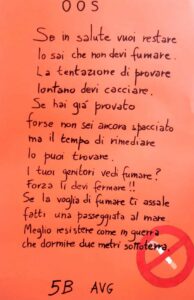 OOS
Se in salute vuoi restare
lo sai che non devi fumare.
La tentazione di provare
lontano devi cacciare.
Se hai già provato
forse non sei ancora spacciato
ma il tempo di rimediare
lo puoi trovare.
I tuoi genitori vedi fumare?
Forza li devi fermare!!
Se la voglia di fumare ti assale
fatti una passeggiata al mare.
Meglio resistere come in guerra
che dormire due metri sottoterra.
5B AVG